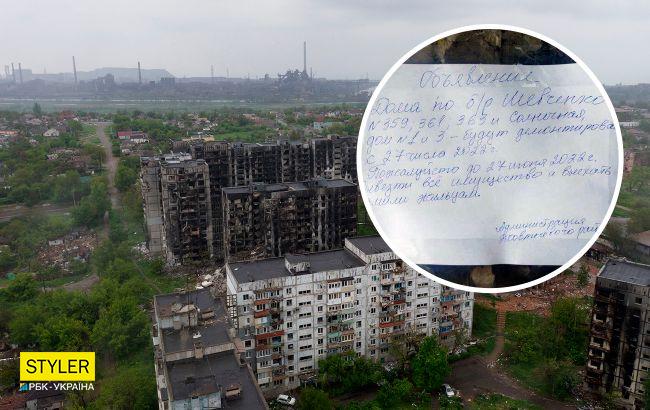 Объявление
Дома по б/р Шевченко
N 359, 361, 365 и Солнечная,
дом N 1 и 3 - будут демонтирова
с 27 числа 2022 г.
Пожалуйста до 27 июня 2022 г.
все имущество и выехать
жильцам.
Администрация
STYLER
РБК-УКРАЇНА